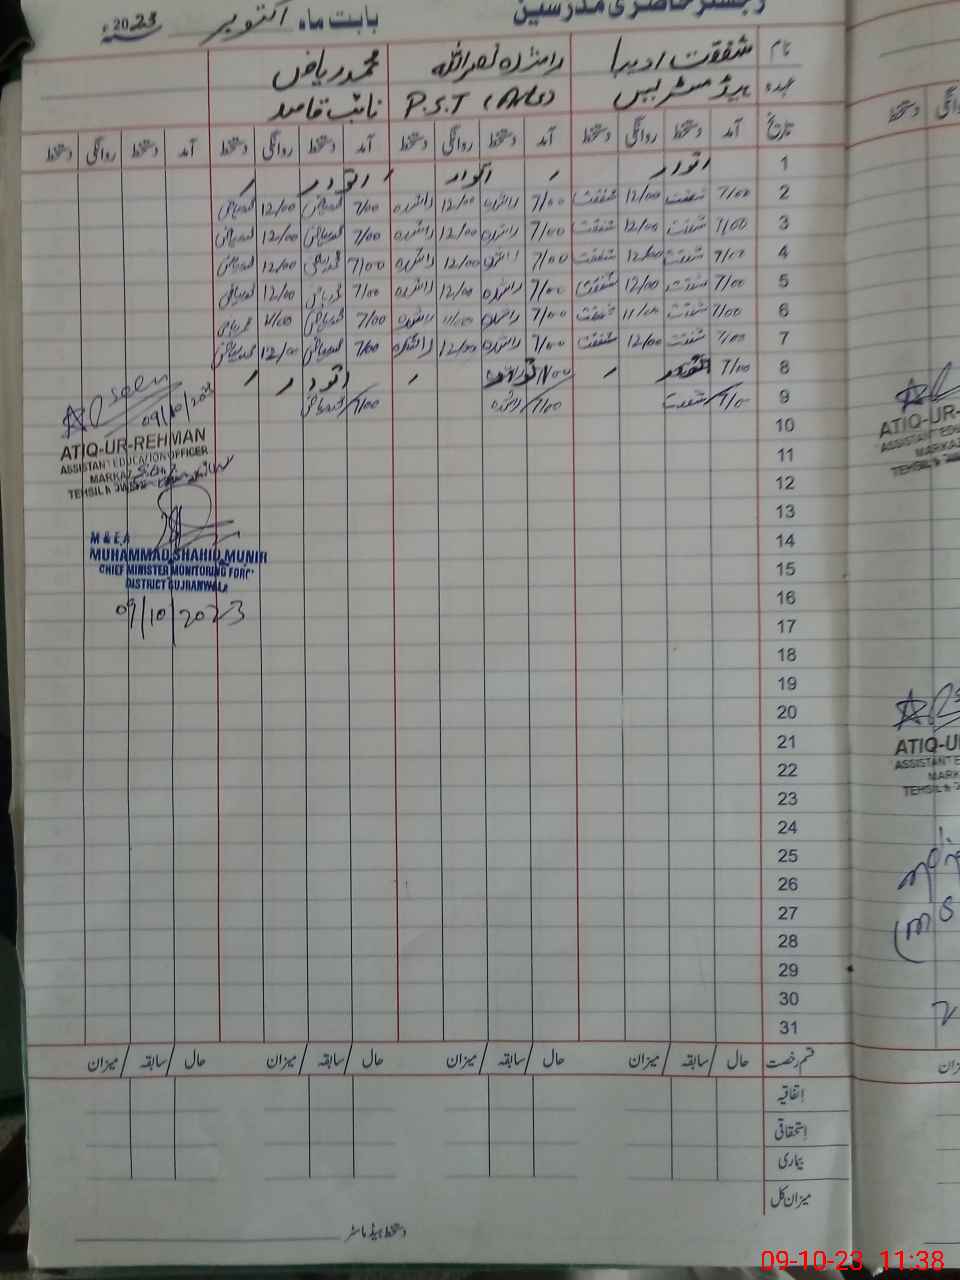 رجسٹر حاضری مدرسین
بابت ماہ اکتوبر 2023ء
نام شفقت راشدہ نصراللہ محمد ریاض
عہدہ ہیڈ مسٹریس P.S.T نائب قاصد
تاریخ آمد دستخط روانگی دستخط آمد دستخط روانگی دستخط آمد دستخط روانگی دستخط آمد دستخط روانگی دستخط
1 اتوار اتوار اتوار
2 7/00 شفقت 12/00 شفقت 7/00 راشدہ 12/00 راشدہ 7/00 محمد ریاض 12/00 محمد ریاض
3 7/00 شفقت 12/00 شفقت 7/00 راشدہ 12/00 راشدہ 7/00 محمد ریاض 12/00 محمد ریاض
4 7/00 شفقت 12/00 شفقت 7/00 راشدہ 12/00 راشدہ 7/00 محمد ریاض 12/00 محمد ریاض
5 7/00 شفقت 12/00 شفقت 7/00 راشدہ 12/00 راشدہ 7/00 محمد ریاض 12/00 محمد ریاض
6 7/00 شفقت 11/00 شفقت 7/00 راشدہ 11/00 راشدہ 7/00 محمد ریاض 11/00 محمد ریاض
7 7/00 شفقت 12/00 شفقت 7/00 راشدہ 12/00 راشدہ 7/00 محمد ریاض 12/00 محمد ریاض
8 7/00 اتوار اتوار اتوار
9 7/00 شفقت 7/00 راشدہ 7/00 محمد ریاض
10
11
12
13
14
15
16
17
18
19
20
21
22
23
24
25
26
27
28
29
30
31
seen
09/10/2023
ATIQ-UR-REHMAN
ASSISTANT EDUCATION OFFICER
MARKAZ
TEHSIL &
M & E.A
MUHAMMAD SHAHID MUNIR
CHIEF MINISTER MONITORING FORC
DISTRICT GUJRANWALA
09/10/2023
قسم رخصت حال / سابقہ / میزان حال / سابقہ / میزان حال / سابقہ / میزان حال / سابقہ / میزان
اتفاقیہ
استحقاقی
بیماری
میزان کل
دستخط ہیڈ ماسٹر
ATIQ-UR-
ASSISTANT EDU
MARKAZ
TEHSIL &
ATIQ-U
ASSISTANT E
MARK
TEHSIL &
09-10-23 11:38